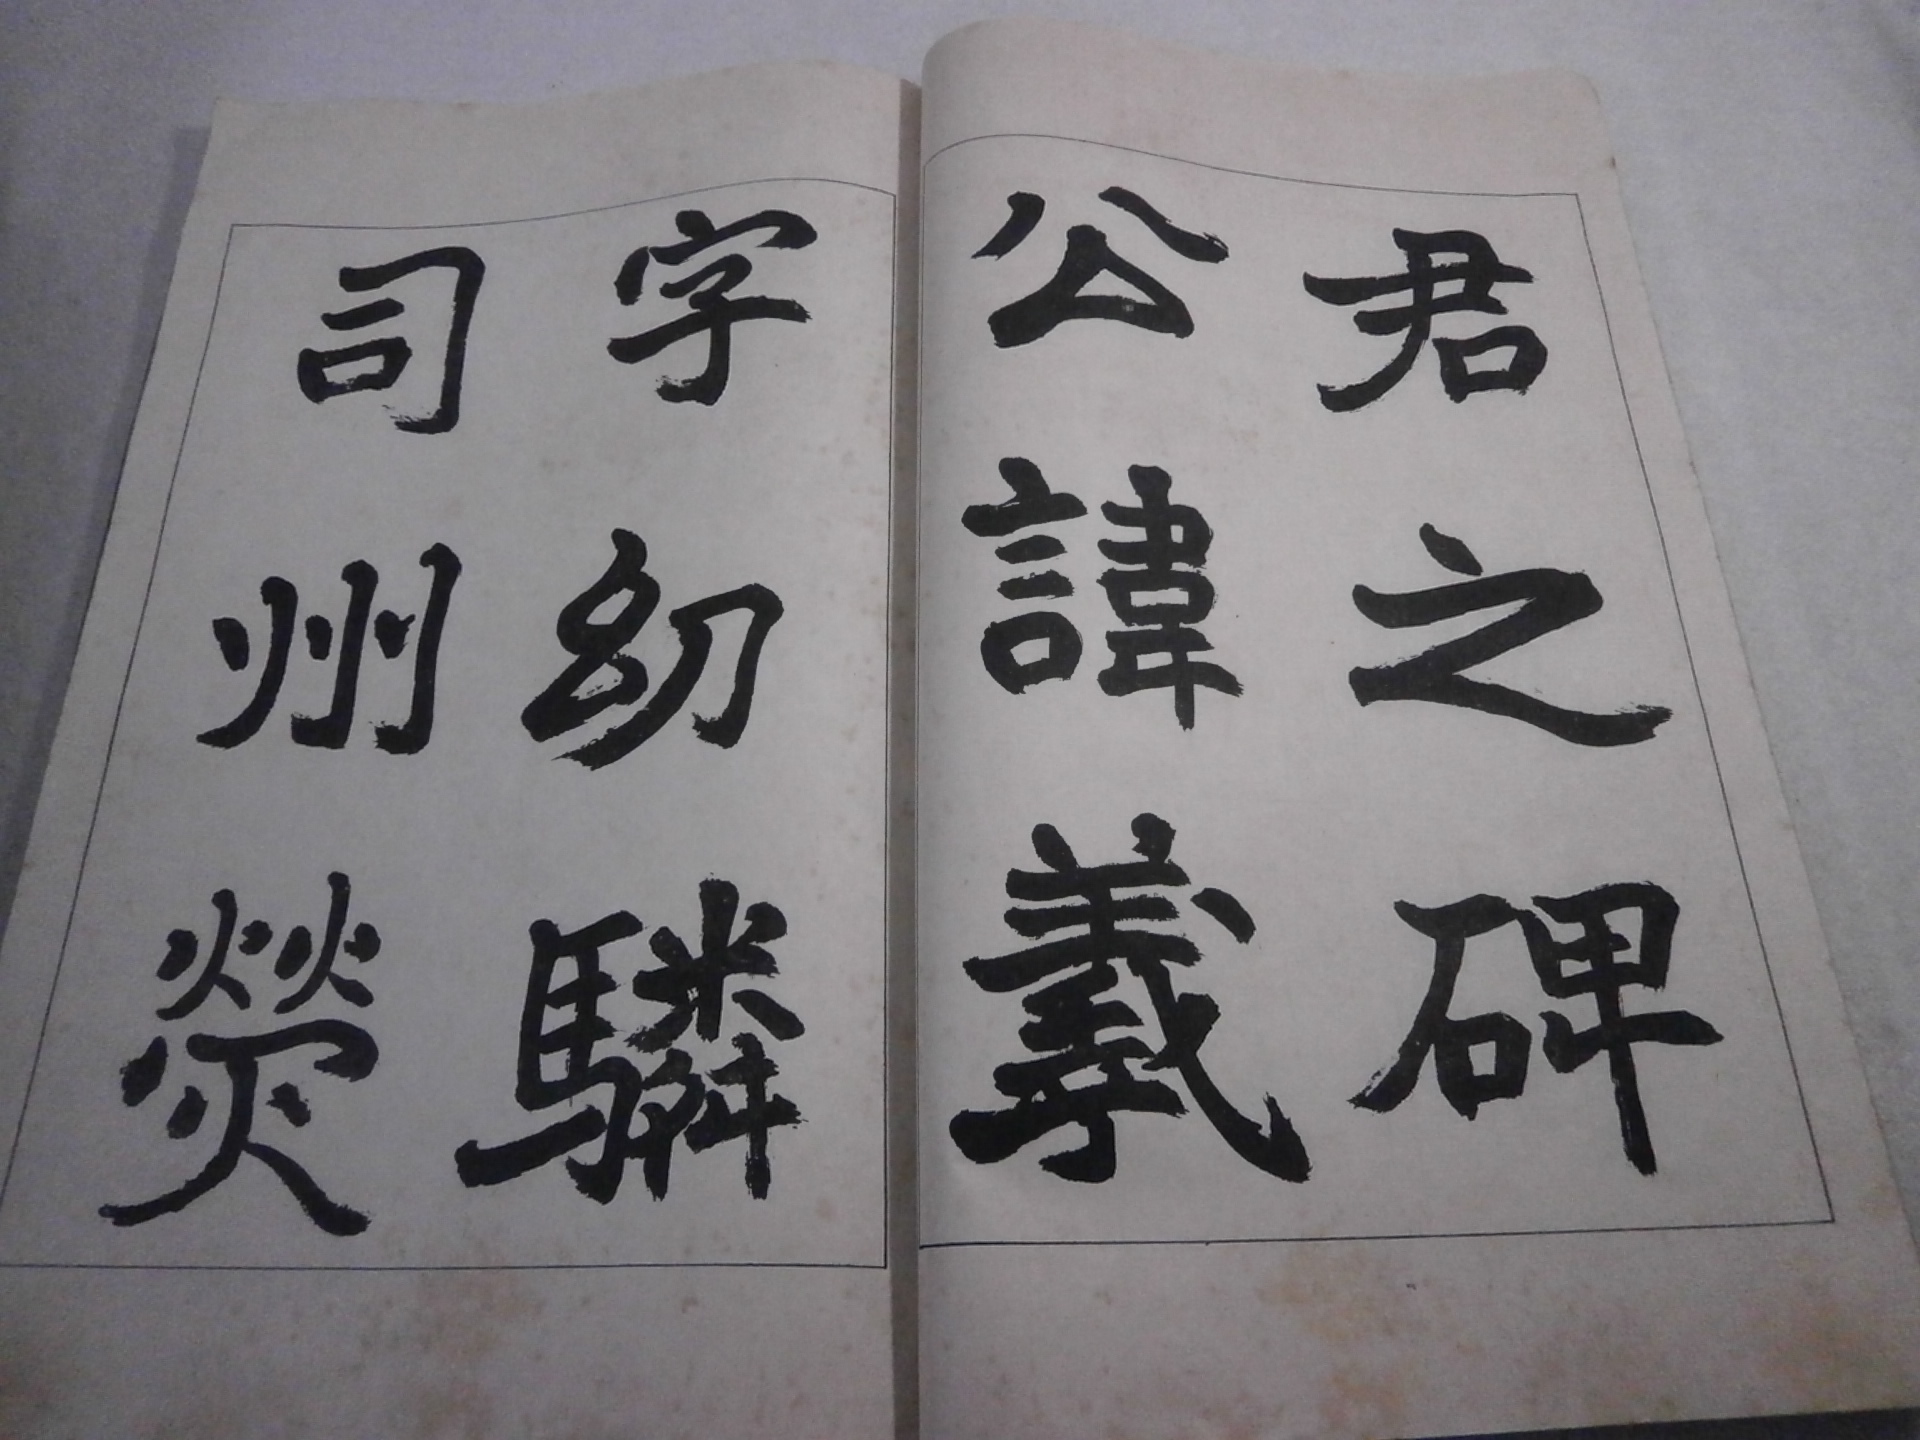 君之碑
公諱羲
字幼驎
司州熒